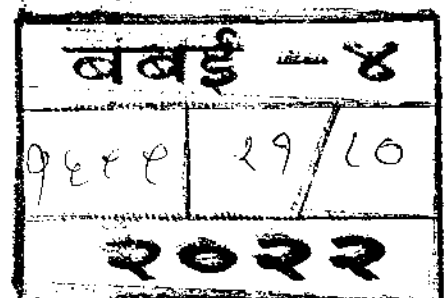 बबई - ४
१६९९ २१/८०
२०२२